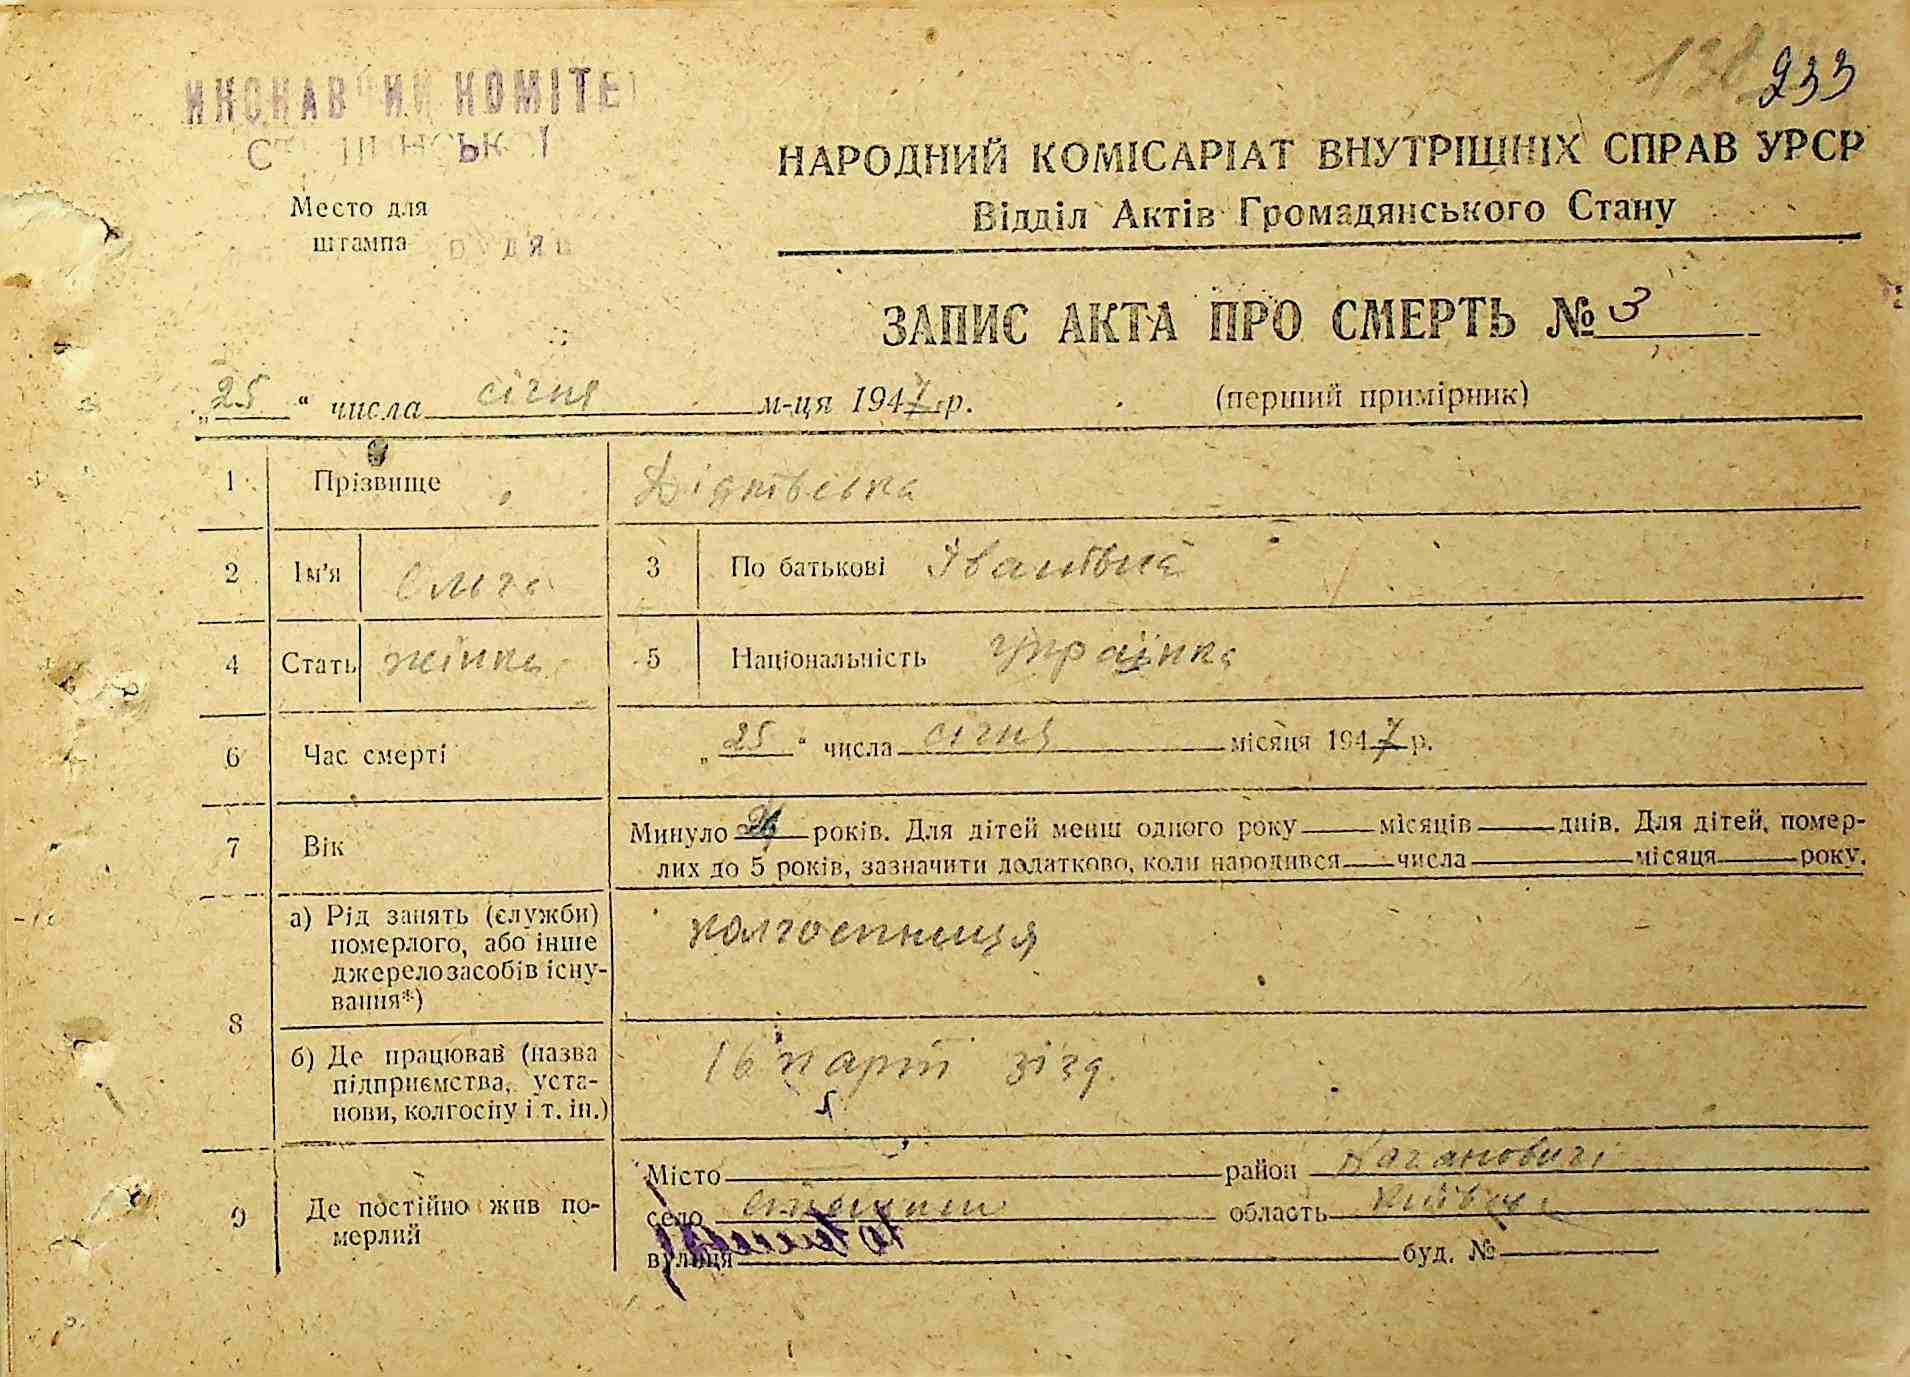 233
НАРОДНИЙ КОМІСАРІАТ ВНУТРІШНІХ СПРАВ УРСР
Відділ Актів Громадянського Стану
Место для
штампа
ЗАПИС АКТА ПРО СМЕРТЬ № 3
„25“ числа січня м-ця 1947 р. (перший примірник)
1 Прізвище Дідківська
2 Ім'я Ольга 3 По батькові Іванівна
4 Стать жінка 5 Національність українка
6 Час смерті „25“ числа січня місяця 1947 р.
7 Вік Минуло років. Для дітей менш одного року місяців днів. Для дітей, помер-
лих до 5 років, зазначити додатково, коли народився числа місяця року.
8 а) Рід занять (служби)
померлого, або інше
джерело засобів існу-
вання*)
колгоспниця
б) Де працював (назва
підприємства, уста-
нови, колгоспу і т. ін.)
16 парт зізд.
9 Де постійно жив по-
мерлий
Місто район Каганович
село область Київськ
вулиця буд. №